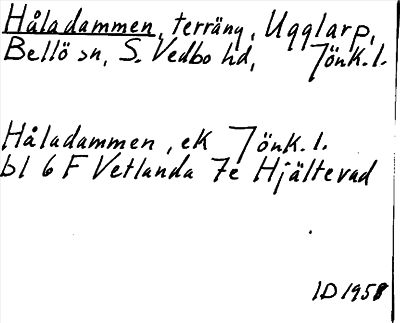 Håladammen, terräng, Ugglarp,
Bellö sn, S. Vedbo hd, Jönk. l.
Håladammen, ek Jönk. l.
bl 6 F Vetlanda 7e Hjältevad
ID 1958